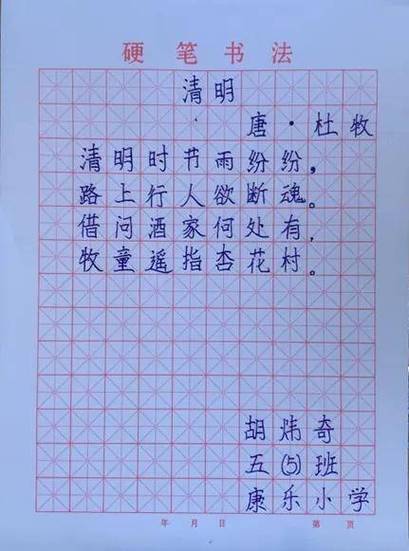 硬笔书法
清明
唐·杜牧
清明时节雨纷纷，
路上行人欲断魂。
借问酒家何处有，
牧童遥指杏花村。
胡炜奇
五(5)班
康乐小学
年 月 日 第 页